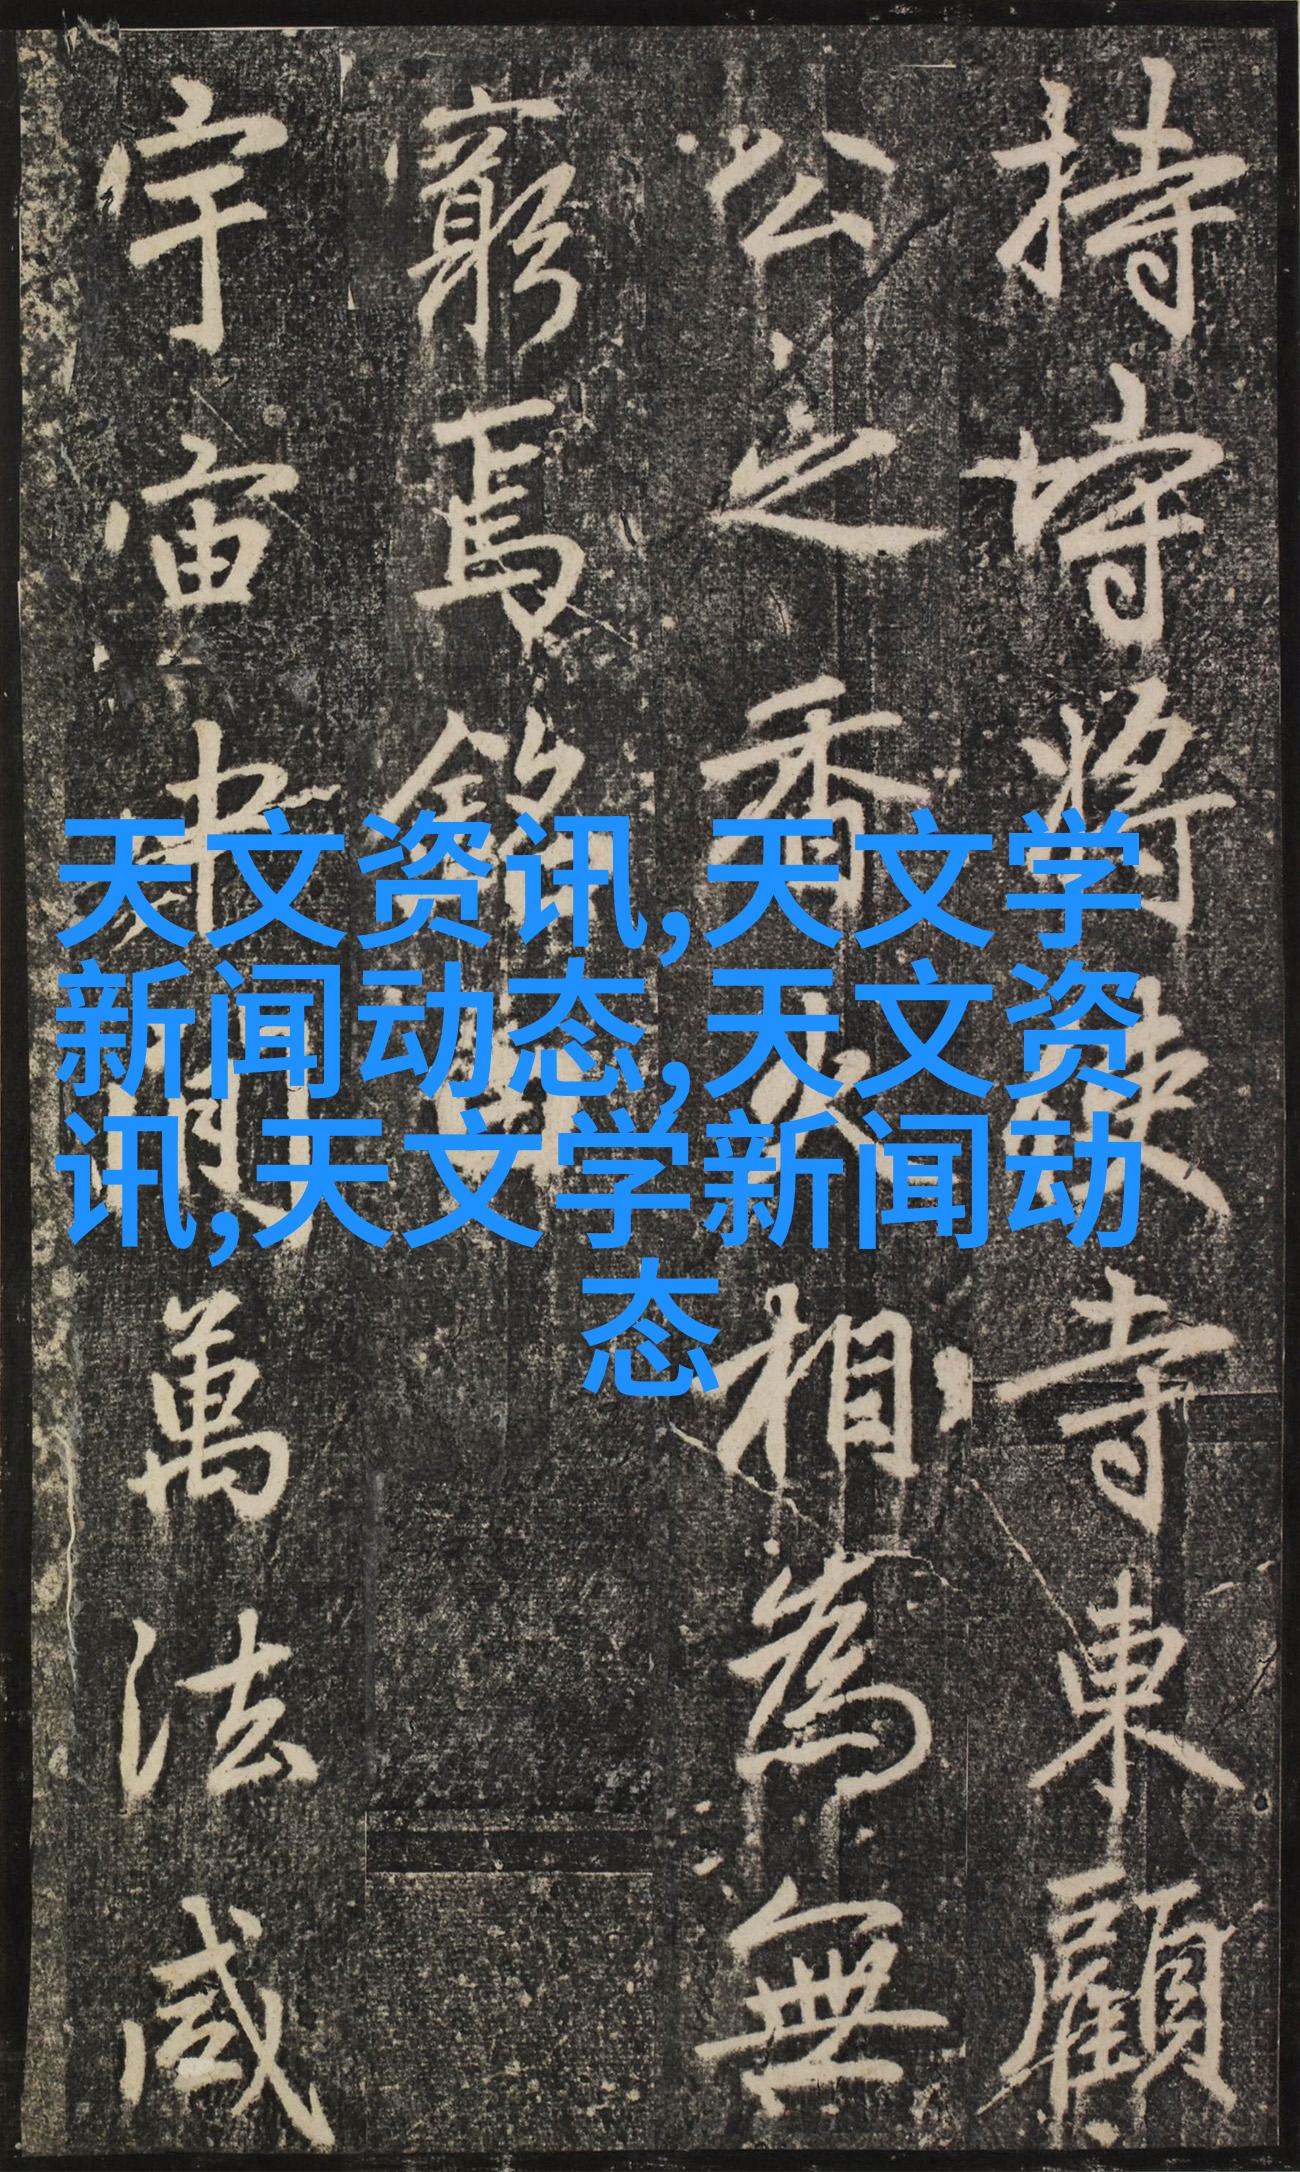 持將寺東顧
公之香火相為無
窮焉銘曰
宇宙萬法咸
天文资讯,天文学
新闻动态,天文资
讯,天文学新闻动
态